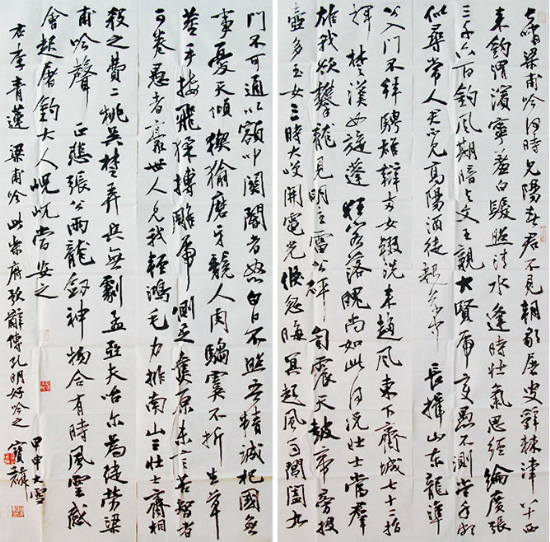 長嘯梁甫吟何時見陽春君不見朝歌屠叟辭棘津八十西
來釣渭濱寧羞白髮照清水逢時壯氣思經綸廣張
三千六百釣風期暗與文王親大賢虎變愚不測當年頗
似尋常人君不見高陽酒徒起草中長揖山東隆準
公入門不拜騁雄辯兩女輟洗來趨風東下齊城七十二指
揮楚漢如旋蓬狂客落魄尚如此何況壯士當羣
雄我欲攀龍見明主雷公砰訇震天鼓帝旁投
壺多玉女三時大笑開電光倏忽晦冥起風雨閶闔九
門不可通以額叩關閽者怒白日不照吾精誠杞國無
事憂天傾猰貐磨牙競人肉騶虞不折生草
莖手接飛猱搏雕虎側足焦原未言苦智者
可卷愚者豪世人見我輕鴻毛力排南山三壯士齊相
殺之費二桃吳楚弄兵無劇孟亞夫咍爾為徒勞梁
甫吟聲正悲張公兩龍劍神物合有時風雲感
會起屠釣大人峴屼當安之
右李青蓮梁甫吟此樂府歌辭傳孔明好吟之
甲申大雪